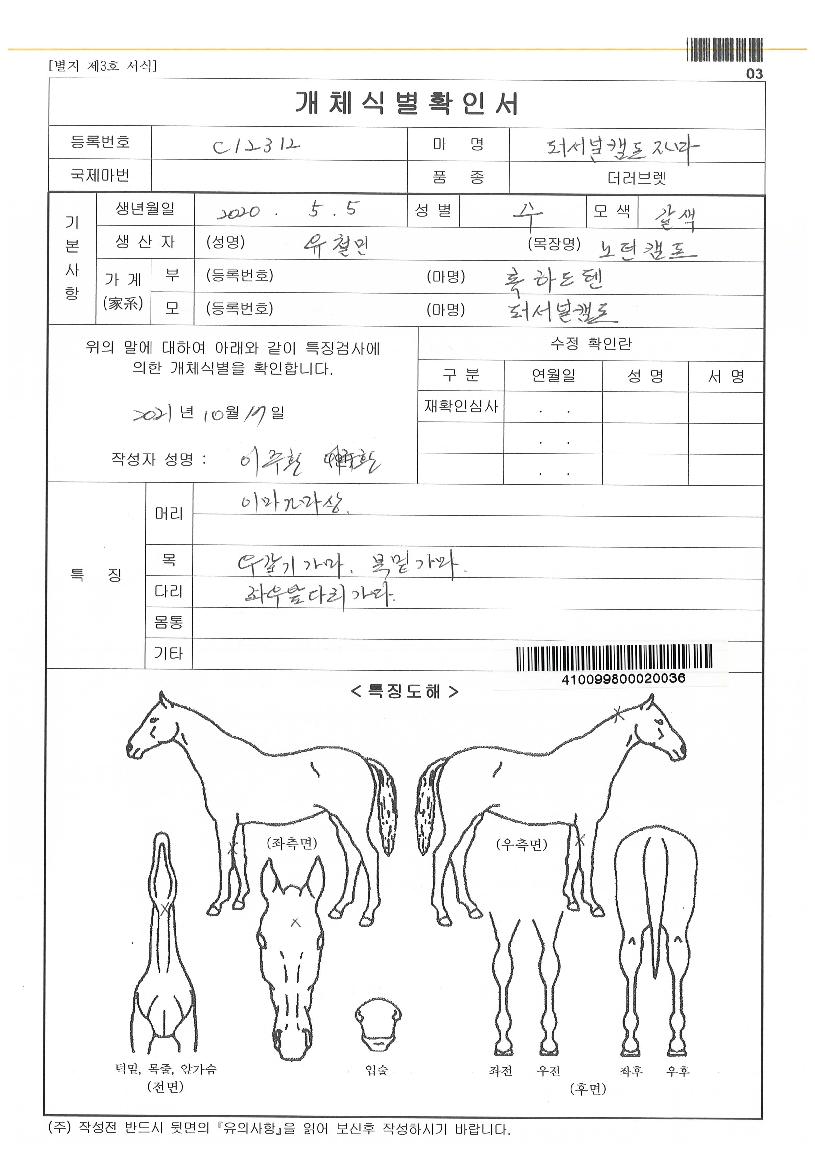 [별지 제3호 서식]
03
개체식별확인서
등록번호 C12312 마 명 퍼서널캠프지나
국제마번 품 종 더러브렛
기본사항
생년월일 2020 . 5 . 5 성 별 수 모 색 갈색
생 산 자 (성명) 유철민 (목장명) 노던캠프
가 계 (家系) 부 (등록번호) (마명) 록하드텐
모 (등록번호) (마명) 퍼서널캠프
위의 말에 대하여 아래와 같이 특징검사에
의한 개체식별을 확인합니다.
2021 년 10 월 17 일
작성자 성명 : 이주환
수정 확인란
구 분 연월일 성 명 서 명
재확인심사 . .
. .
. .
특 징
머리 이마가마상.
목 우갈기가마. 목밑가마.
다리 좌우앞다리가마.
몸통
기타
410099800020036
< 특징도해 >
(좌측면) (우측면)
턱밑, 목줄, 앞가슴
(전면)
입술
좌전 우전 좌후 우후
(후면)
(주) 작성전 반드시 뒷면의 『유의사항』을 읽어 보신후 작성하시기 바랍니다.